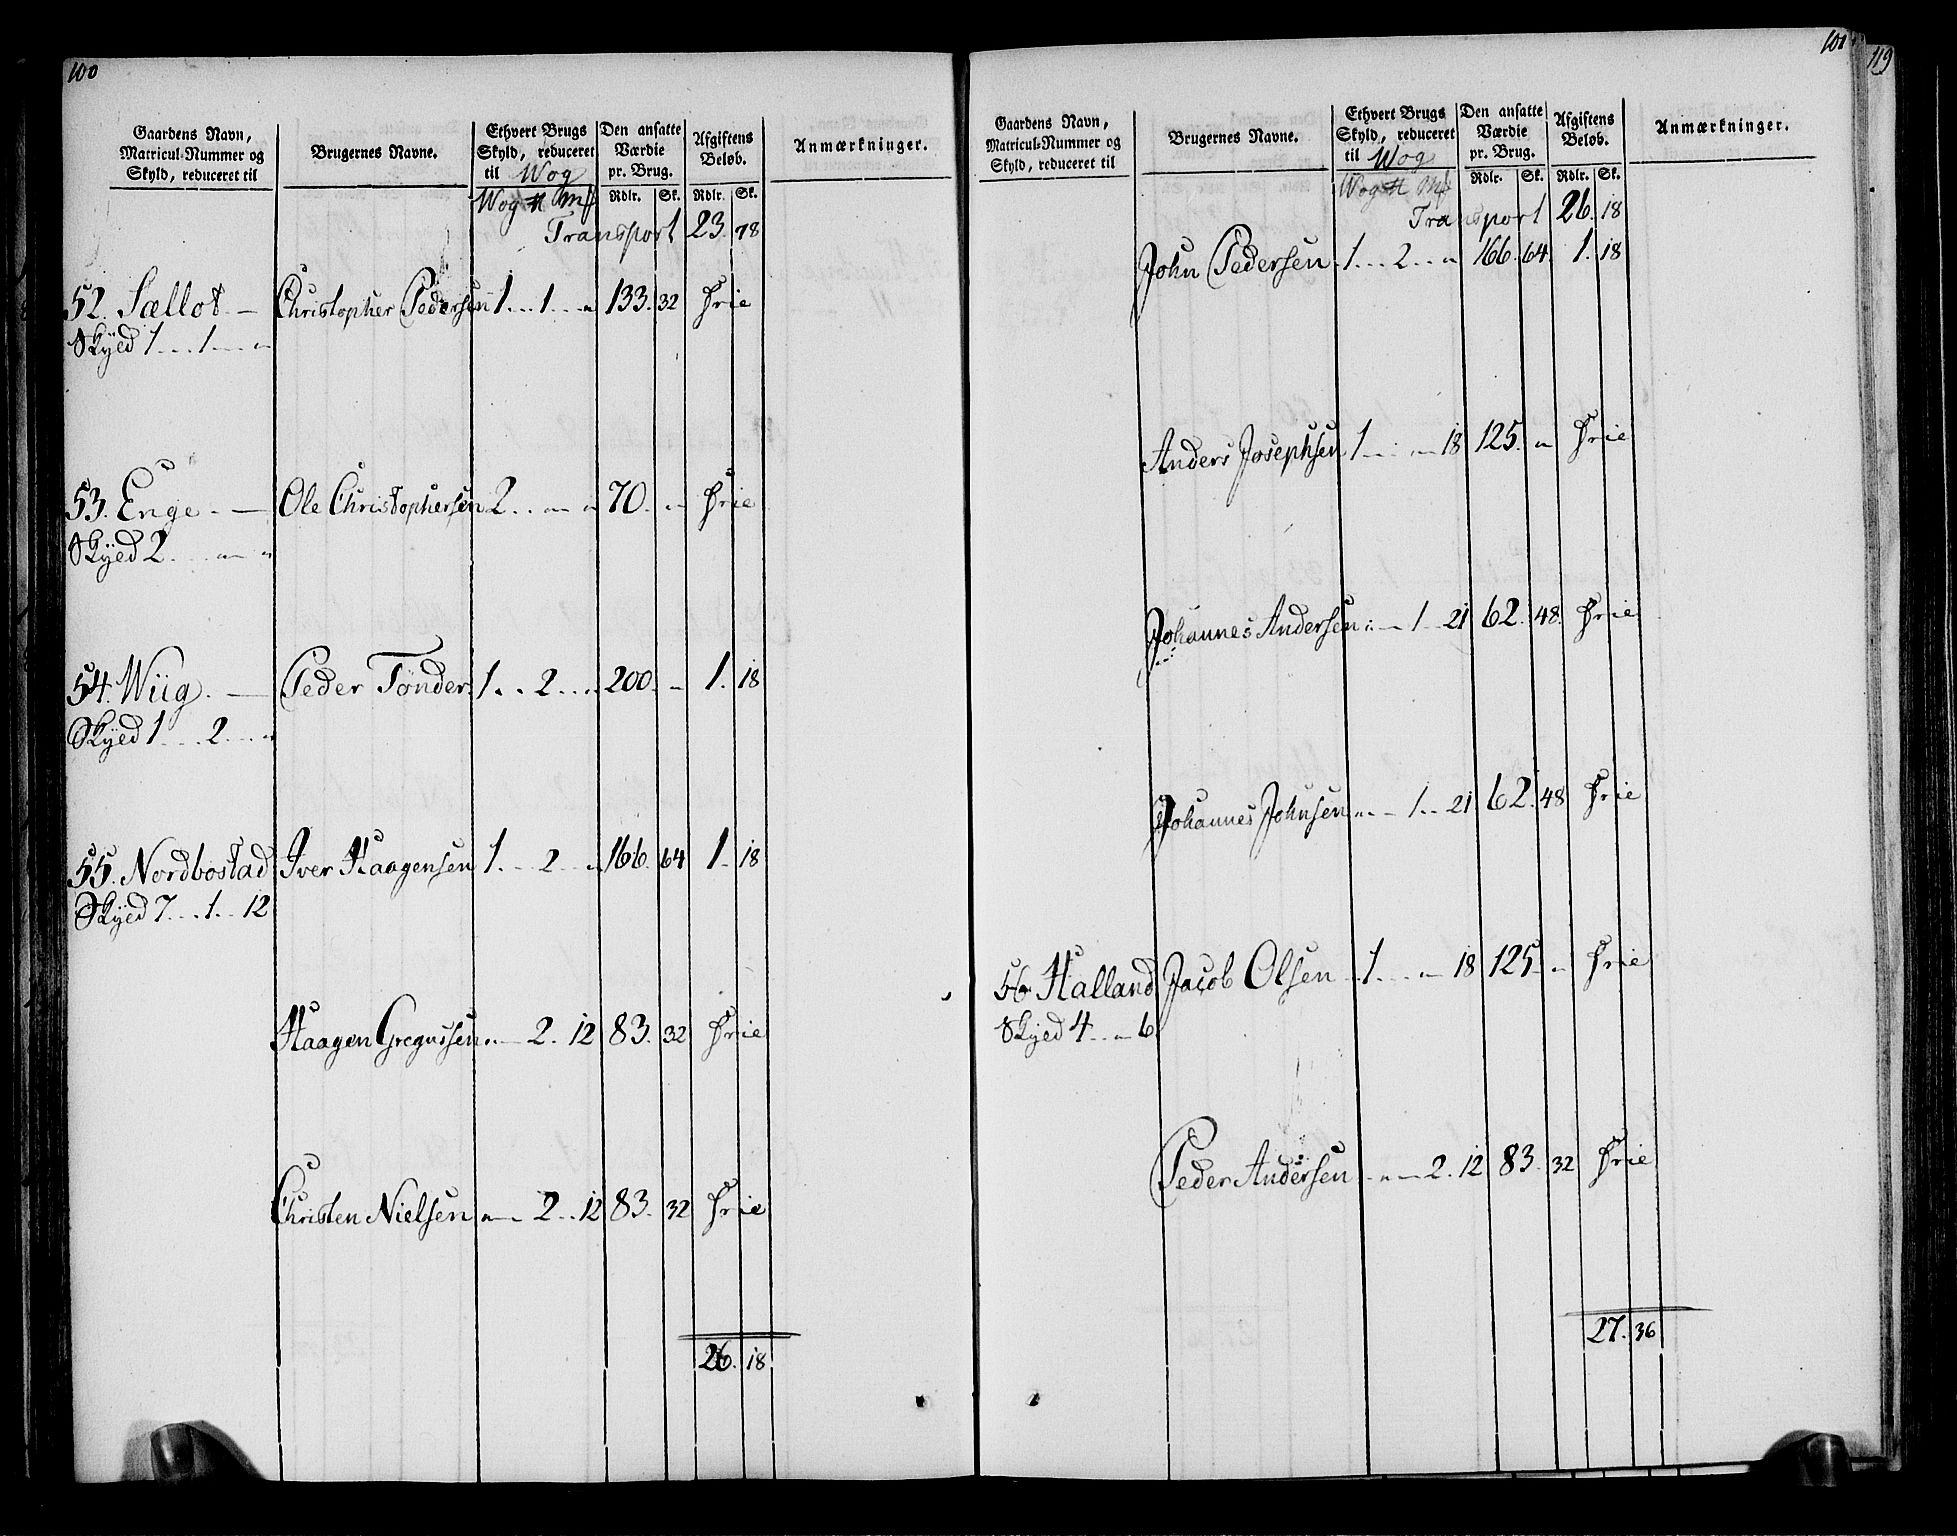 100
Gaardens Navn, Matricul-Nummer og Skyld, reduceret til | Brugernes Navne. | Ethvert Brugs Skyld, reduceret til Wog | Den ansatte Værdie pr. Brug. | Afgiftens Beløb. | Anmærkninger.
Wog | Rdlr. | Sk. | Rdlr. | Sk.
Transport 23. 78
52. Sællot — Christopher Pedersen 1 . . 1 . . " 133. 32 Frie
Skyed 1 . . . 1 . . . "
53. Enge — Ole Christophersen 2 . . " " 70. " Frie
Skyed 2 . . . " "
54. Wiig. — Peder Tønder 1 . . 2 . . " 200. " 1. 18
Skyed 1 . . . 2 . . . "
55. Nordbostad Iver Haagensen 1 . . 2 . . " 166. 64 1. 18
Skyed 7 . . . 1 . . 12
Haagen Gregussen " — 2 . 12 83. 32 Frie
Christen Nielsen " — 2 . . 12 83. 32 Frie
26. 18
101
119
Gaardens Navn, Matricul-Nummer og Skyld, reduceret til | Brugernes Navne. | Ethvert Brugs Skyld, reduceret til Wog | Den ansatte Værdie pr. Brug. | Afgiftens Beløb. | Anmærkninger.
Wog | Rdlr. | Sk. | Rdlr. | Sk.
Transport 26. 18
John Pedersen 1 . . . 2 . . " 166. 64 1. 18
Anders Josephsen 1 . . " 18 125. " Frie
Johannes Andersen " — 1 . . 21 62. 48. Frie
Johannes Johnsen " — 1 . . 21 62. 48 Frie
56 Halland Jacob Olsen 1 . . . " 18 125. " Frie
Skyed 4 . . " 6
Peder Andersen " — 2. 12 83. 32 Frie
27. 36